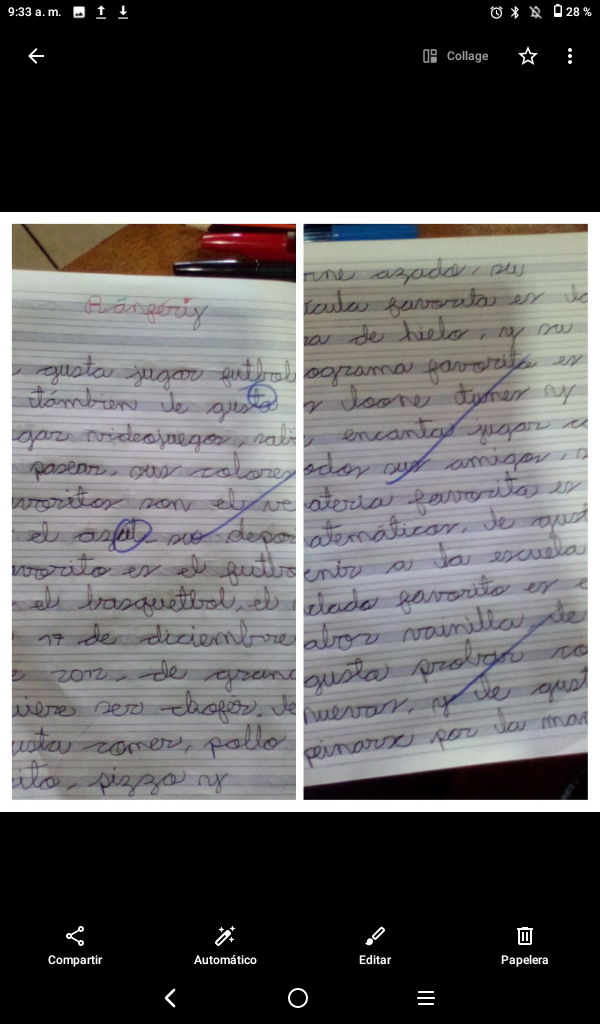 9:33 a. m.
28 %
Collage
Rángeriy
, gusta jugar futbol
támbien le gusta
gar videojuegos, sali
pasear, sus colores
voritos son el ve
el azul su depor
vorito es el futbo
el basquetbol, el
17 de diciembre
2012, de grand
uiere ser chofer, le
usta comer, pollo
ito, pizza y
rne azada, su
icula favorita es la
ra de hielo, y su
ograma favorito es
s loone tunes y
, encanta jugar co
odos sus amigos, s
ateria favorita es
atemáticas, le gust
enir a la escuela
elado favorito es e
abor vainilla le
gusta probar co
nuevas, y le gust
peinarse por la mañ
Compartir
Automático
Editar
Papelera